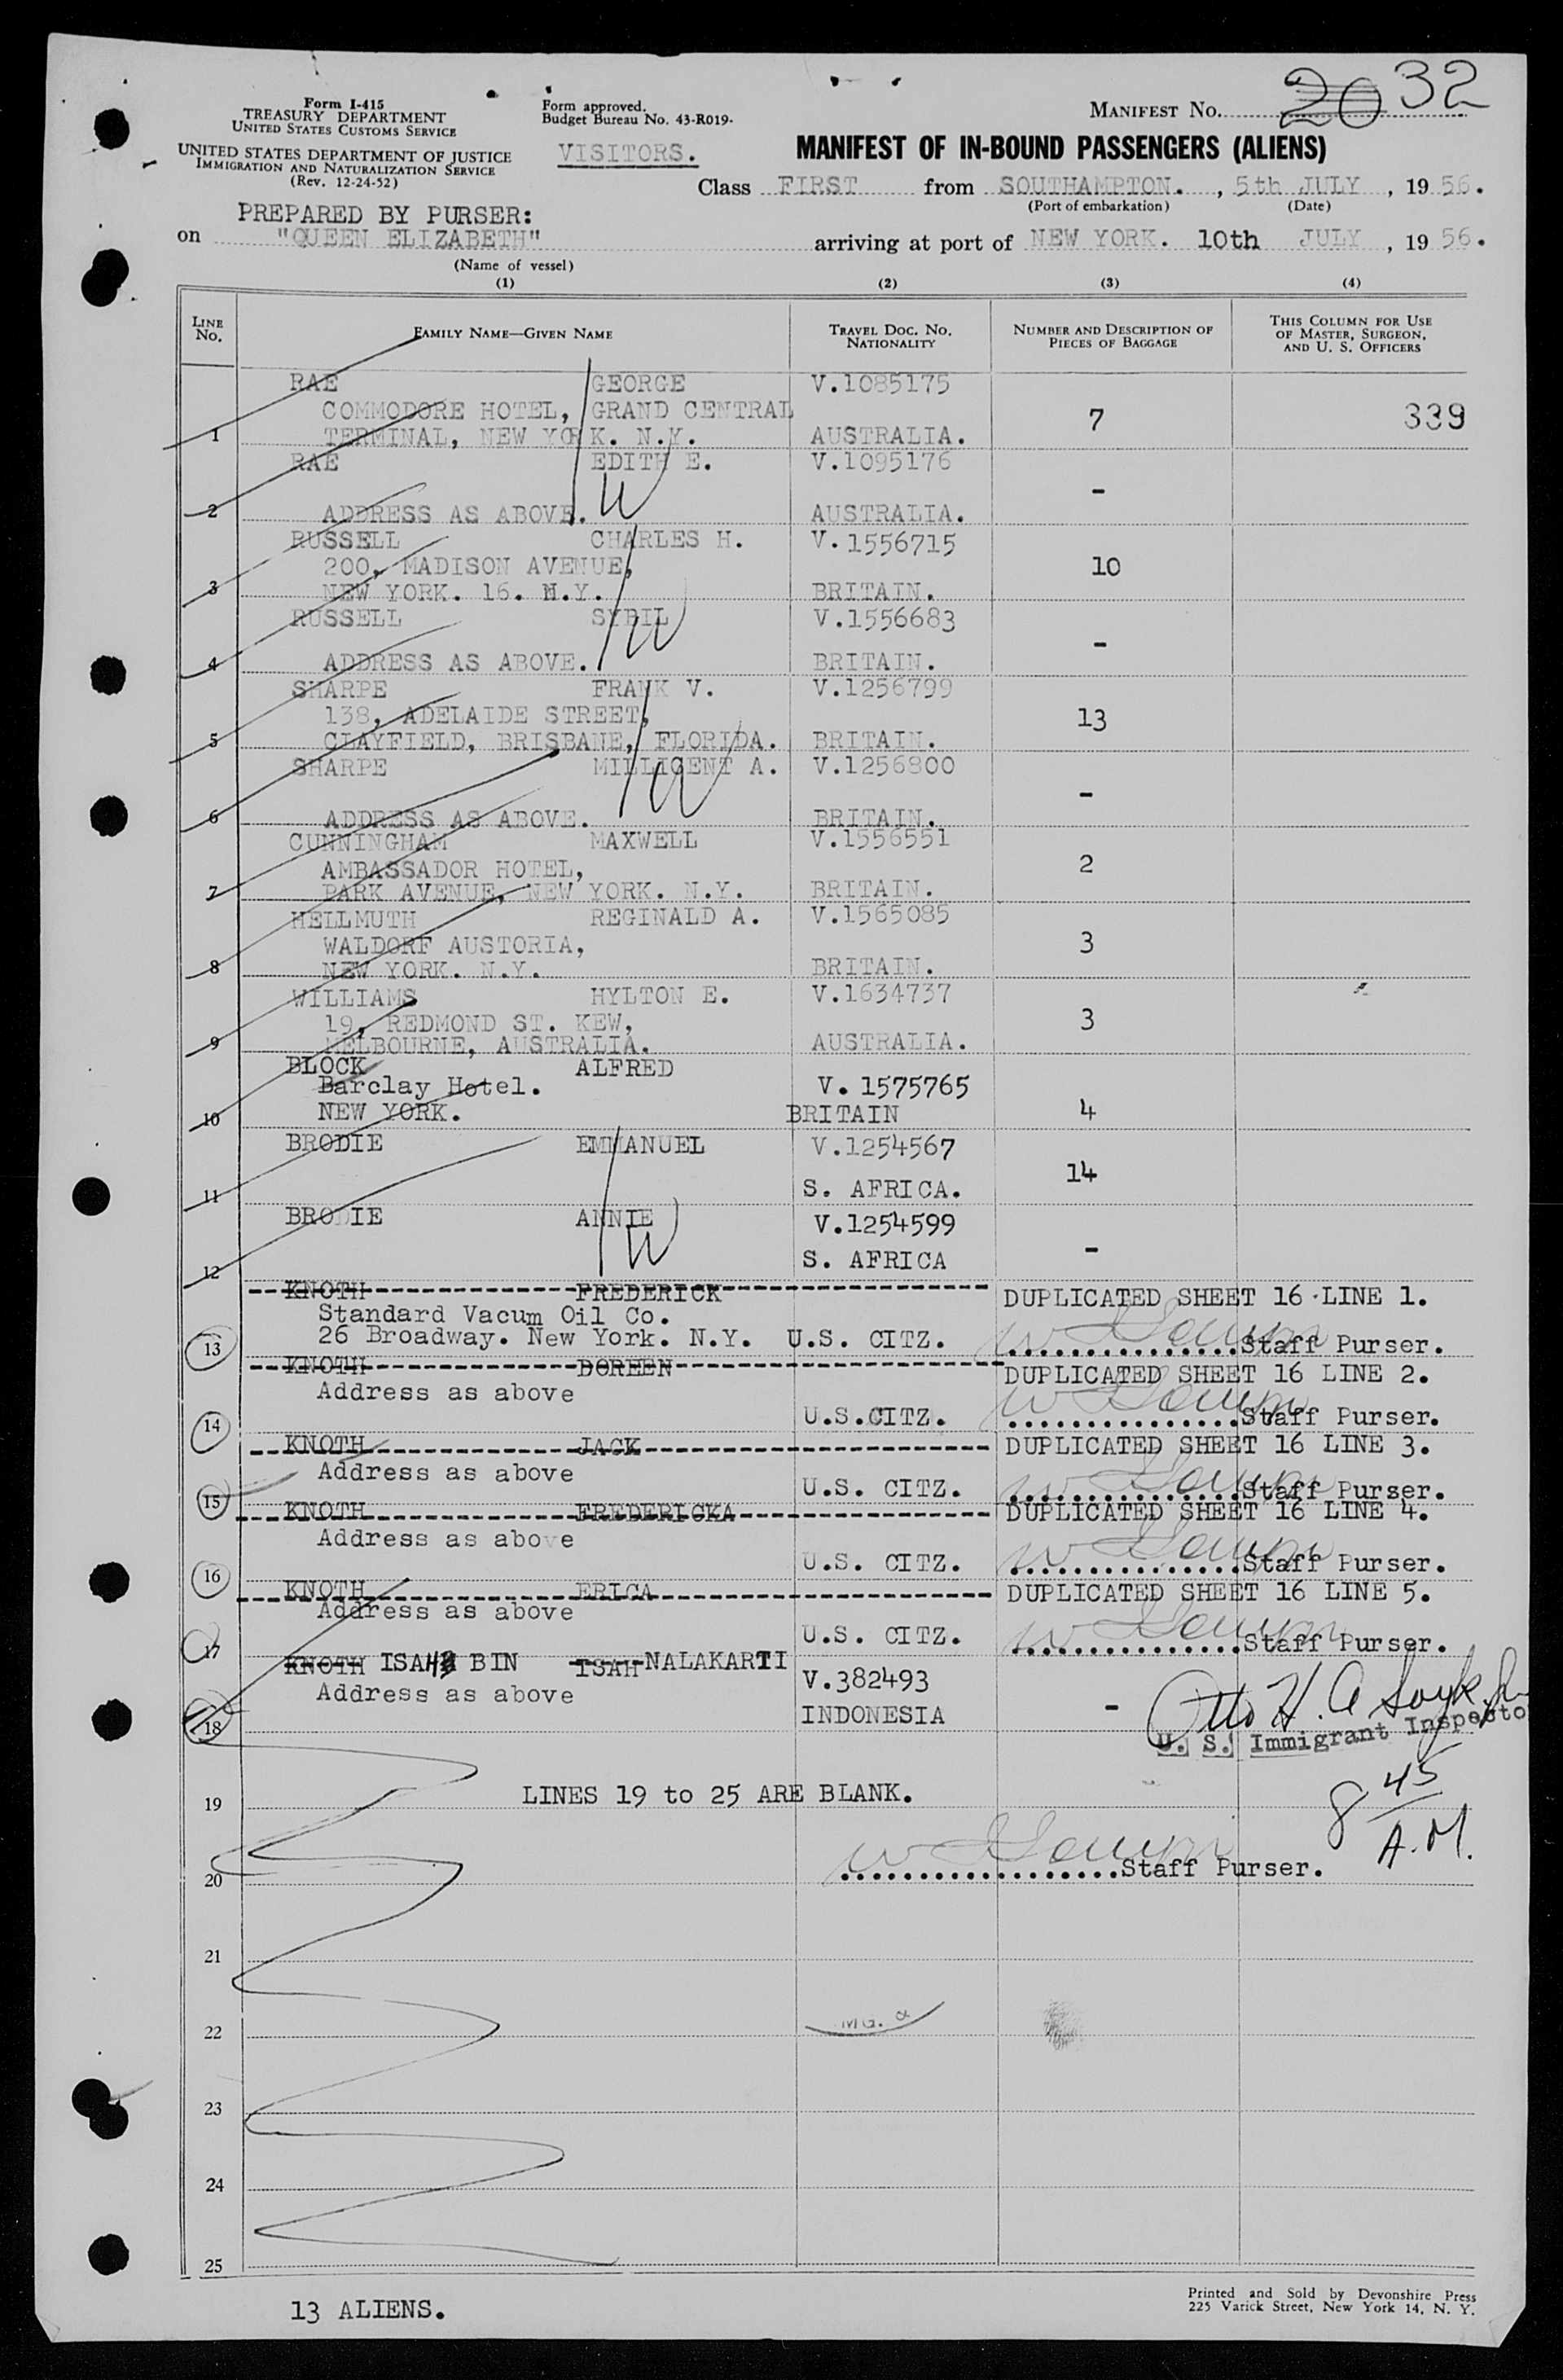 Form I-415
TREASURY DEPARTMENT
UNITED STATES CUSTOMS SERVICE
UNITED STATES DEPARTMENT OF JUSTICE
IMMIGRATION AND NATURALIZATION SERVICE
(Rev. 12-24-52)
Form approved.
Budget Bureau No. 43-R019.
VISITORS.
MANIFEST NO. 20 32
MANIFEST OF IN-BOUND PASSENGERS (ALIENS)
Class FIRST from SOUTHAMPTON. , 5th JULY , 1956.
(Port of embarkation) (Date)
PREPARED BY PURSER:
on "QUEEN ELIZABETH" arriving at port of NEW YORK. 10th JULY , 1956.
(Name of vessel)
(1) (2) (3) (4)
LINE No. FAMILY NAME—GIVEN NAME TRAVEL DOC. NO. NATIONALITY NUMBER AND DESCRIPTION OF PIECES OF BAGGAGE THIS COLUMN FOR USE OF MASTER, SURGEON, AND U. S. OFFICERS
RAE GEORGE V.1085175
COMMODORE HOTEL, GRAND CENTRAL 7 339
1 TERMINAL, NEW YORK. N.Y. AUSTRALIA.
RAE EDITH E. V.1095176
-
2 ADDRESS AS ABOVE. AUSTRALIA.
RUSSELL CHARLES H. V.1556715
200, MADISON AVENUE, 10
3 NEW YORK. 16. N.Y. BRITAIN.
RUSSELL SYBIL V.1556683
-
4 ADDRESS AS ABOVE. BRITAIN.
SHARPE FRANK V. V.1256799
138, ADELAIDE STREET, 13
5 CLAYFIELD, BRISBANE, FLORIDA. BRITAIN.
SHARPE MILLICENT A. V.1256800
-
6 ADDRESS AS ABOVE. BRITAIN.
CUNNINGHAM MAXWELL V.1556551
AMBASSADOR HOTEL, 2
7 PARK AVENUE, NEW YORK. N.Y. BRITAIN.
HELLMUTH REGINALD A. V.1565085
WALDORF AUSTORIA, 3
8 NEW YORK. N.Y. BRITAIN.
WILLIAMS HYLTON E. V.1634737
19, REDMOND ST. KEW, 3
9 MELBOURNE, AUSTRALIA. AUSTRALIA.
BLOCK ALFRED
Barclay Hotel. V. 1575765
10 NEW YORK. BRITAIN 4
BRODIE EMMANUEL V.1254567
14
11 S. AFRICA.
BRODIE ANNIE V.1254599
-
12 S. AFRICA
KNOTH FREDERICK DUPLICATED SHEET 16 LINE 1.
Standard Vacum Oil Co.
13 26 Broadway. New York. N.Y. U.S. CITZ. Staff Purser.
KNOTH DOREEN DUPLICATED SHEET 16 LINE 2.
Address as above
14 U.S.CITZ. Staff Purser.
KNOTH JACK DUPLICATED SHEET 16 LINE 3.
Address as above
15 U.S. CITZ. Staff Purser.
KNOTH FREDERICKA DUPLICATED SHEET 16 LINE 4.
Address as above
16 U.S. CITZ. Staff Purser.
KNOTH ERICA DUPLICATED SHEET 16 LINE 5.
Address as above
17 U.S. CITZ. Staff Purser.
KNOTH ISAH BIN ISAH NALAKARTI V.382493
Address as above
18 INDONESIA -
U. S. Immigrant Inspector
19 LINES 19 to 25 ARE BLANK.
8 45 A.M.
20 Staff Purser.
21
22
23
24
25
13 ALIENS.
Printed and Sold by Devonshire Press
225 Varick Street, New York 14, N. Y.